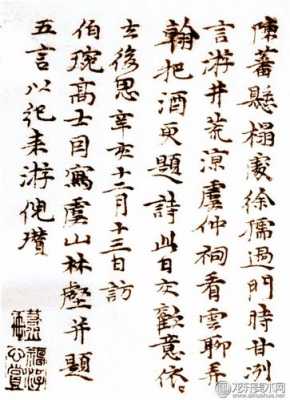 陳蕃懸榻處徐孺過門時甘冽
言游井荒涼虞仲祠看雲聊弄
翰把酒更題詩此日交歡意依〻
去後思辛亥十二月十三日訪
伯琬高士因寫虞山林壑并題
五言以紀来游倪瓚
龙轩美术网